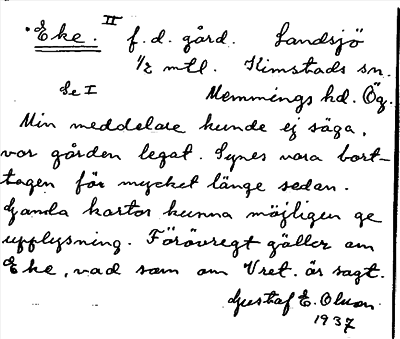 Eke. II f. d. gård. Landsjö
1/2 mtl. Kimstads sn.
Se I Memmings hd. Ög.
Min meddelare kunde ej säga,
var gården legat. Synes vara bort-
tagen för mycket länge sedan.
Gamla kartor kunna möjligen ge
upplysning. Förövregt gäller om
Eke, vad som om Vret. är sagt.
Gustaf E. Olsson.
1937